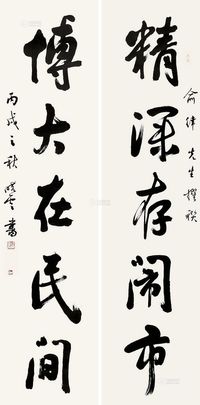 精深存闹市
俞律先生撰联
博大在民间
丙戌之秋晓云书